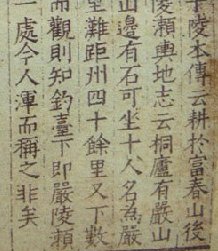 子陵本傳云耕於富春山後
陵瀨輿地志云桐廬有嚴山
山邊有石可坐十人名為嚴
里難距州四十餘里又丁數
而觀則知釣臺下即嚴陵瀬
一處今人渾而稱之非矣